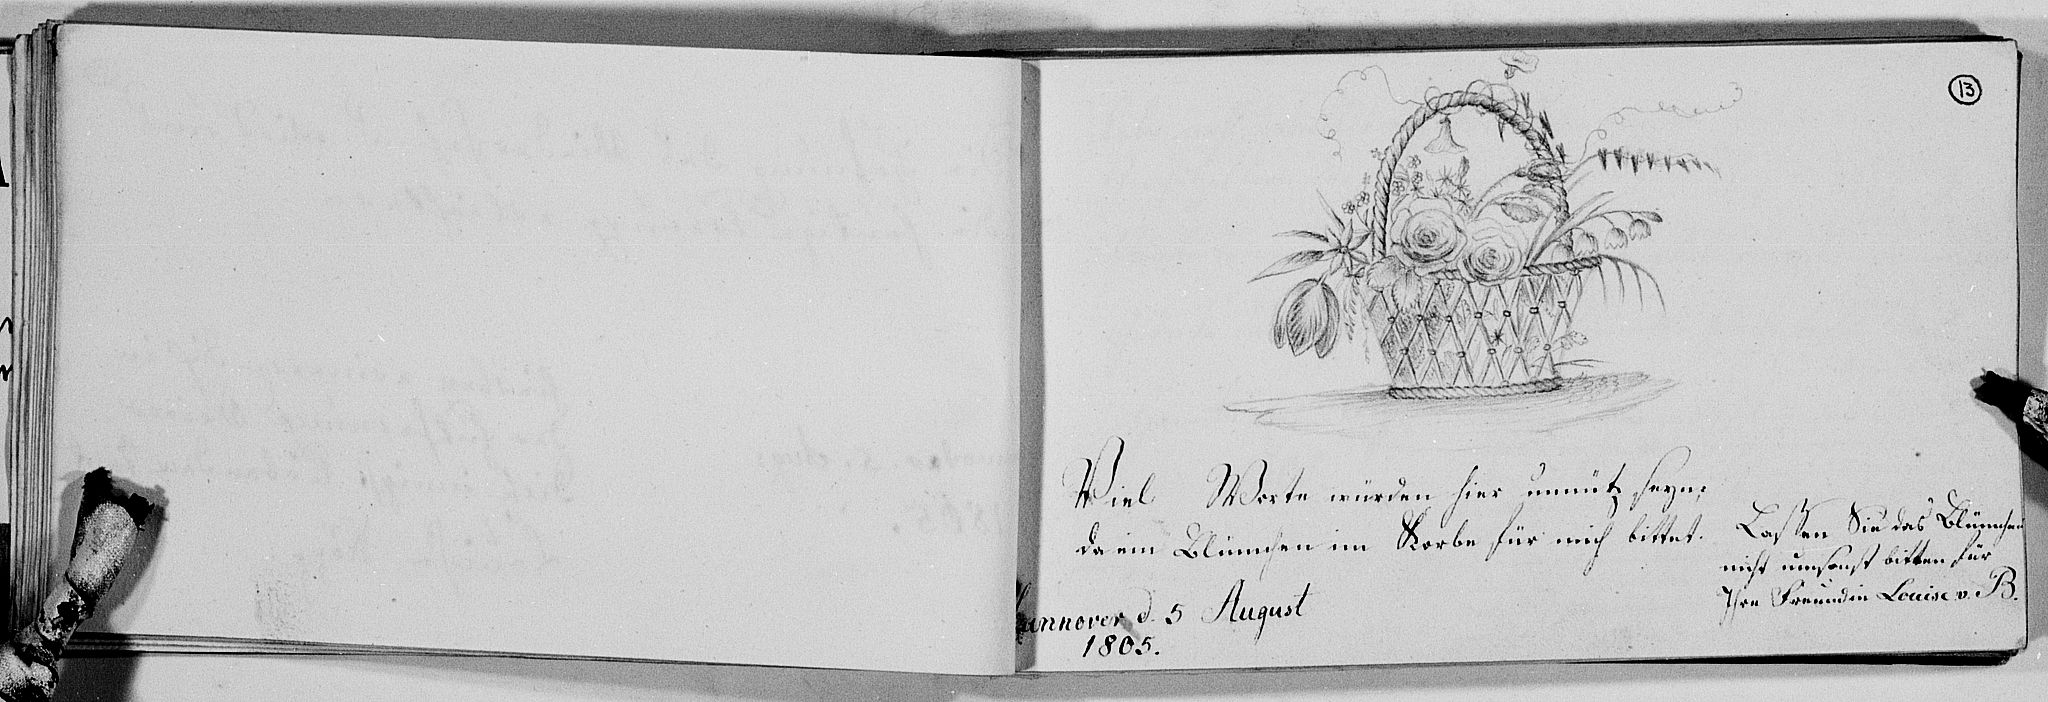 13
Viel Worte würden hier unnütz seyn,
da ein Blümchen im Korbe für mich bittet.
Lassen Sie das Blümchen
nicht umsonst bitten für
Ihre Freundin Louise v. B.
Hannover d. 5 August
1805.